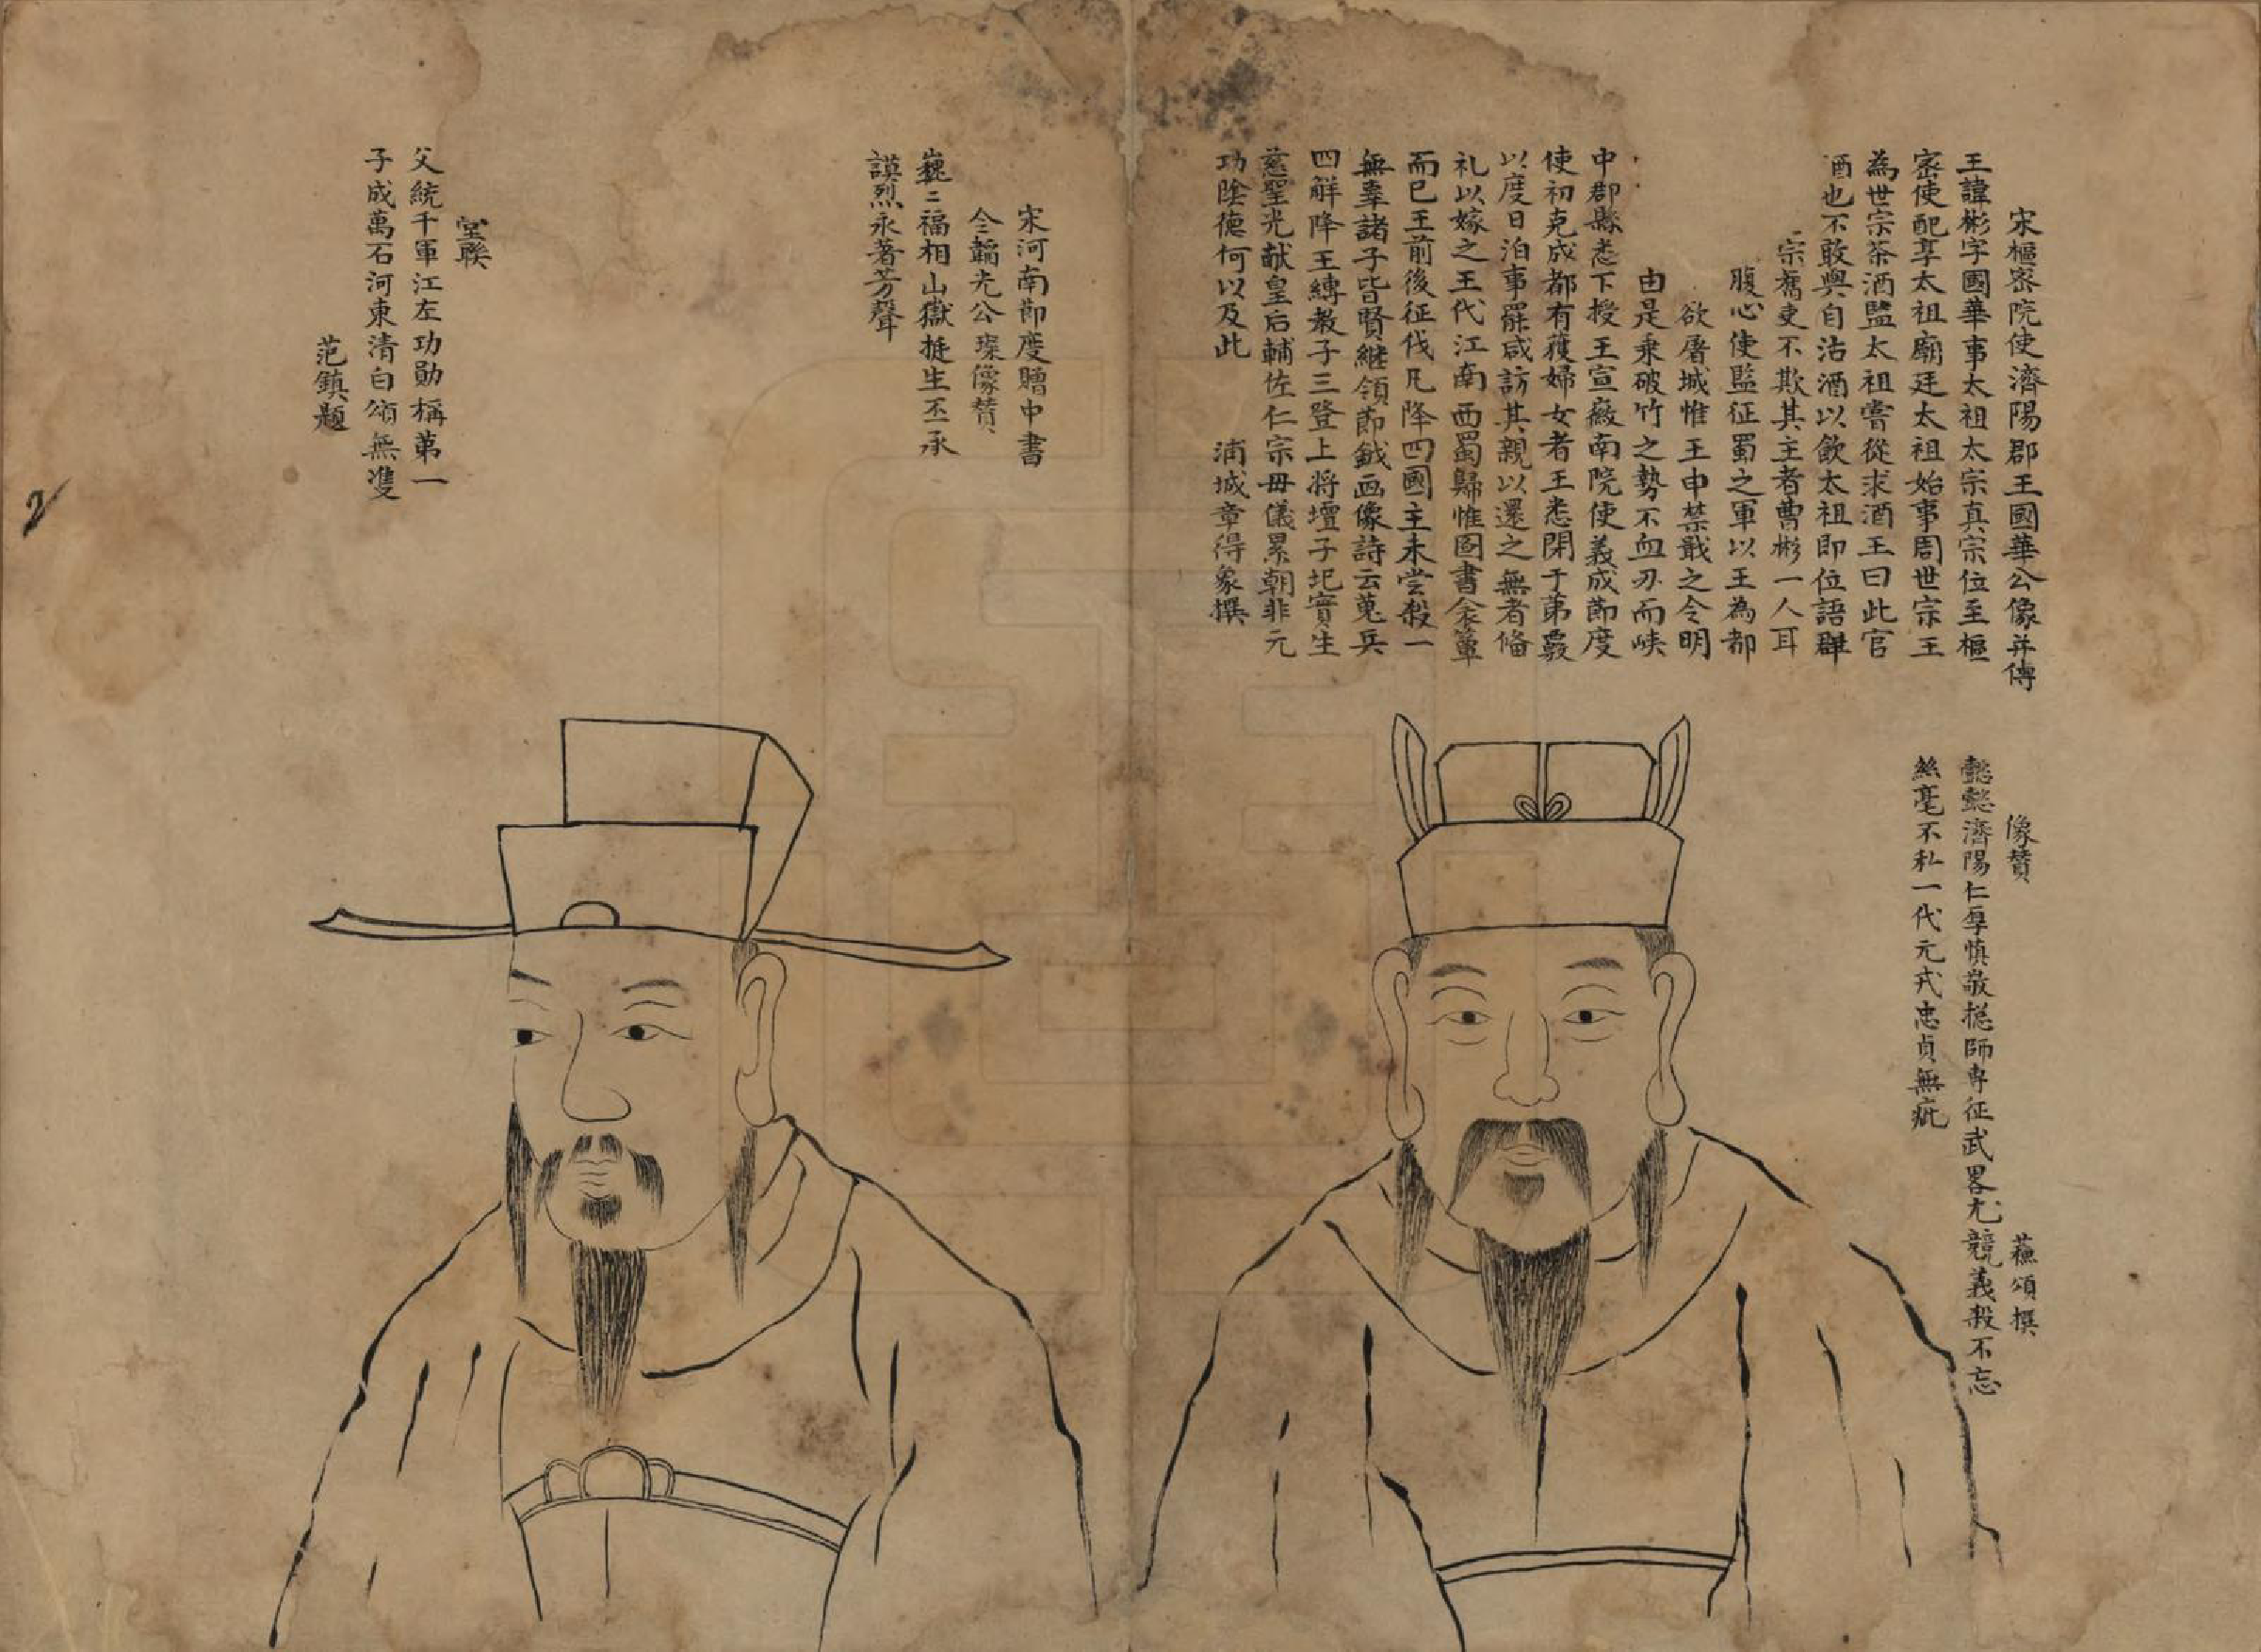 宋樞密院使濟陽郡王國華公像并傳
王諱彬字國華事太祖太宗真宗位至樞
密使配享太祖廟廷太祖始事周世宗王
為世宗茶酒監太祖嘗從求酒王曰此官
酒也不敢與自沽酒以飲太祖即位語群
宗舊吏不欺其主者曹彬一人耳
腹心使監征蜀之軍以王為都
欲屠城惟王申禁戢之令明
由是乘破竹之勢不血刃而峽
中郡縣悉下授王宣徽南院使義成節度
使初克成都有獲婦女者王悉閉于第竅
以度日洎事罷咸訪其親以還之無者俻
礼以嫁之王代江南西蜀歸惟圖書衾簟
而已王前後征伐凡降四國主未尝殺一
無辜諸子皆賢継領節鉞画像詩云蒐兵
四解降王縛教子三登上将壇子玘實生
慈聖光献皇后輔佐仁宗毋儀累朝非元
功陰德何以及此 浦城章得象撰
像贊 蘓頌撰
懿懿濟陽仁厚慎敬捴師専征武畧尤競義殺不忘
絲毫不私一代元戎忠貞無疵
宋河南節度贈中書
令韜光公璨像贊
巍〻福相山嶽挺生丕承
謨烈永著芳聲
堂聮
父統千軍江左功勋稱苐一
子成萬石河東清白頌無䨇
范鎮題
2